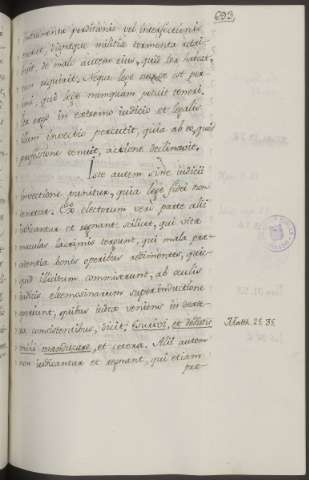 693
instrumenta perditionis vel interfectionis
movit, dignaque militis tormenta adhi-
buit, de malo autem eius, quis lex habeat,
non reputavit. Neque lege est per-
quia lege numquam potuit teneri.
in extremo iudicio et legalis
illum invectio percutit, quia ab eo, quod
professione tenuit, actione declinavit.
Iste autem sine iudicii
invectione punitur, quia lege fidei non
tenetur. Ex electorum vero parte alii
iudicantur et regnant, scilicet, qui vitae
maculas lacrimis tergunt, qui mala prae-
cedentia bonis operibus redimentes, quic-
quid illicitum commiserunt, ab oculis
iudicis eleemosinarum superinductione
operiunt, quibus iudex veniens in dexte-
ra consistentibus, dicit; Esurivi, et dedistis
mihi manducare, et cetera. Alii autem
non iudicantur et regnant, qui etiam
prae-
Matth. 25. 35.